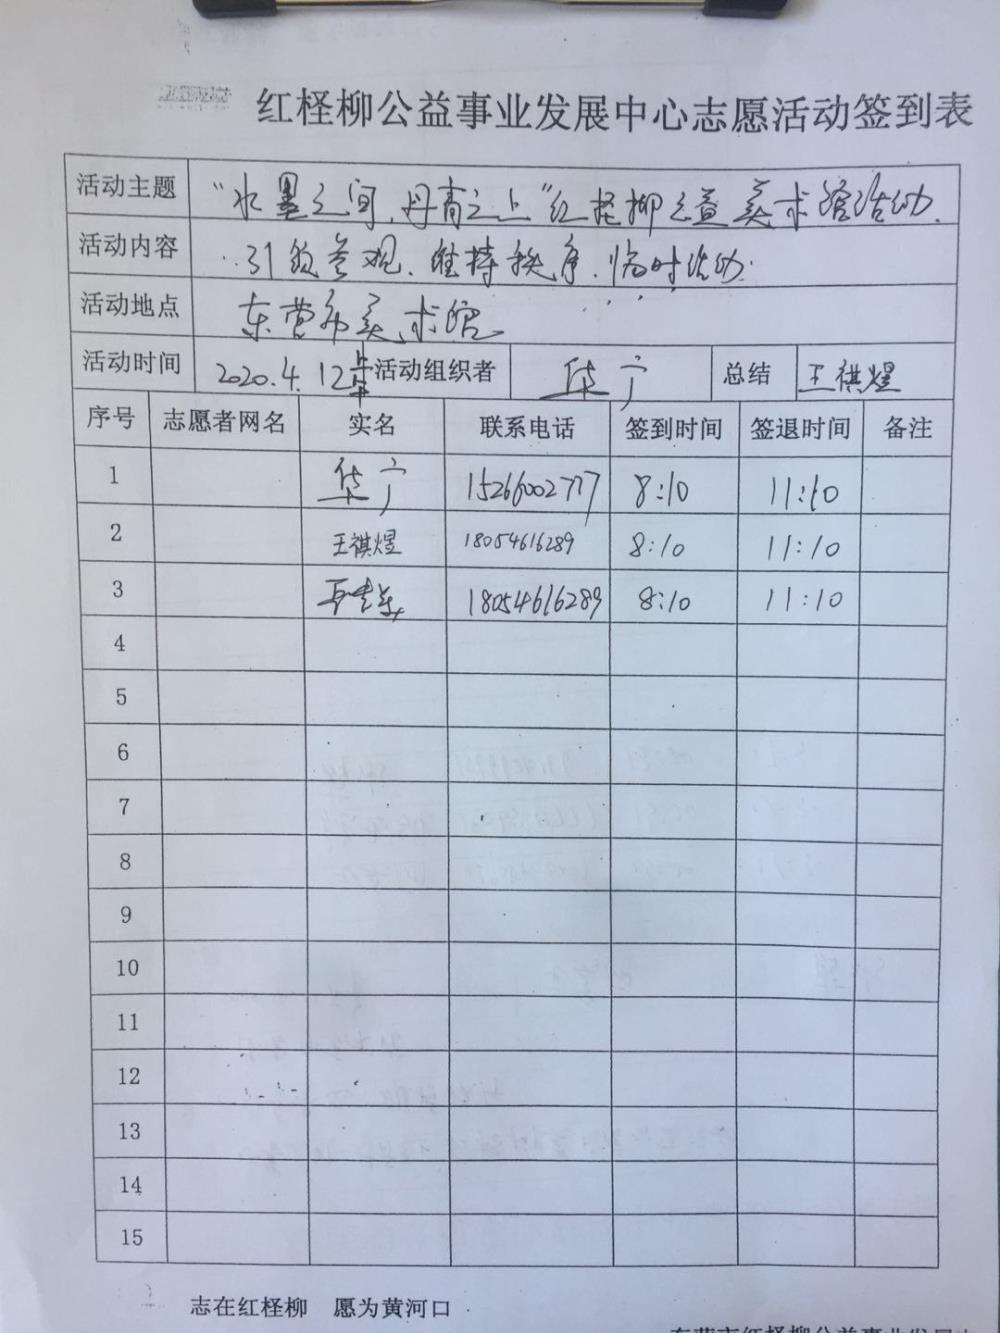 红柽柳公益事业发展中心志愿活动签到表
活动主题 "水墨之间,丹青之上"红柽柳公益美术馆活动.
活动内容 引领参观、维持秩序、临时活动.
活动地点 东营市美术馆
活动时间 2020.4.12上午 活动组织者 华宁 总结 王祺煜
序号 志愿者网名 实名 联系电话 签到时间 签退时间 备注
1 华宁 15266002777 8:10 11:10
2 王祺煜 18054616289 8:10 11:10
3 18054616289 8:10 11:10
4
5
6
7
8
9
10
11
12
13
14
15
志在红柽柳 愿为黄河口
东营市红柽柳公益事业发展中